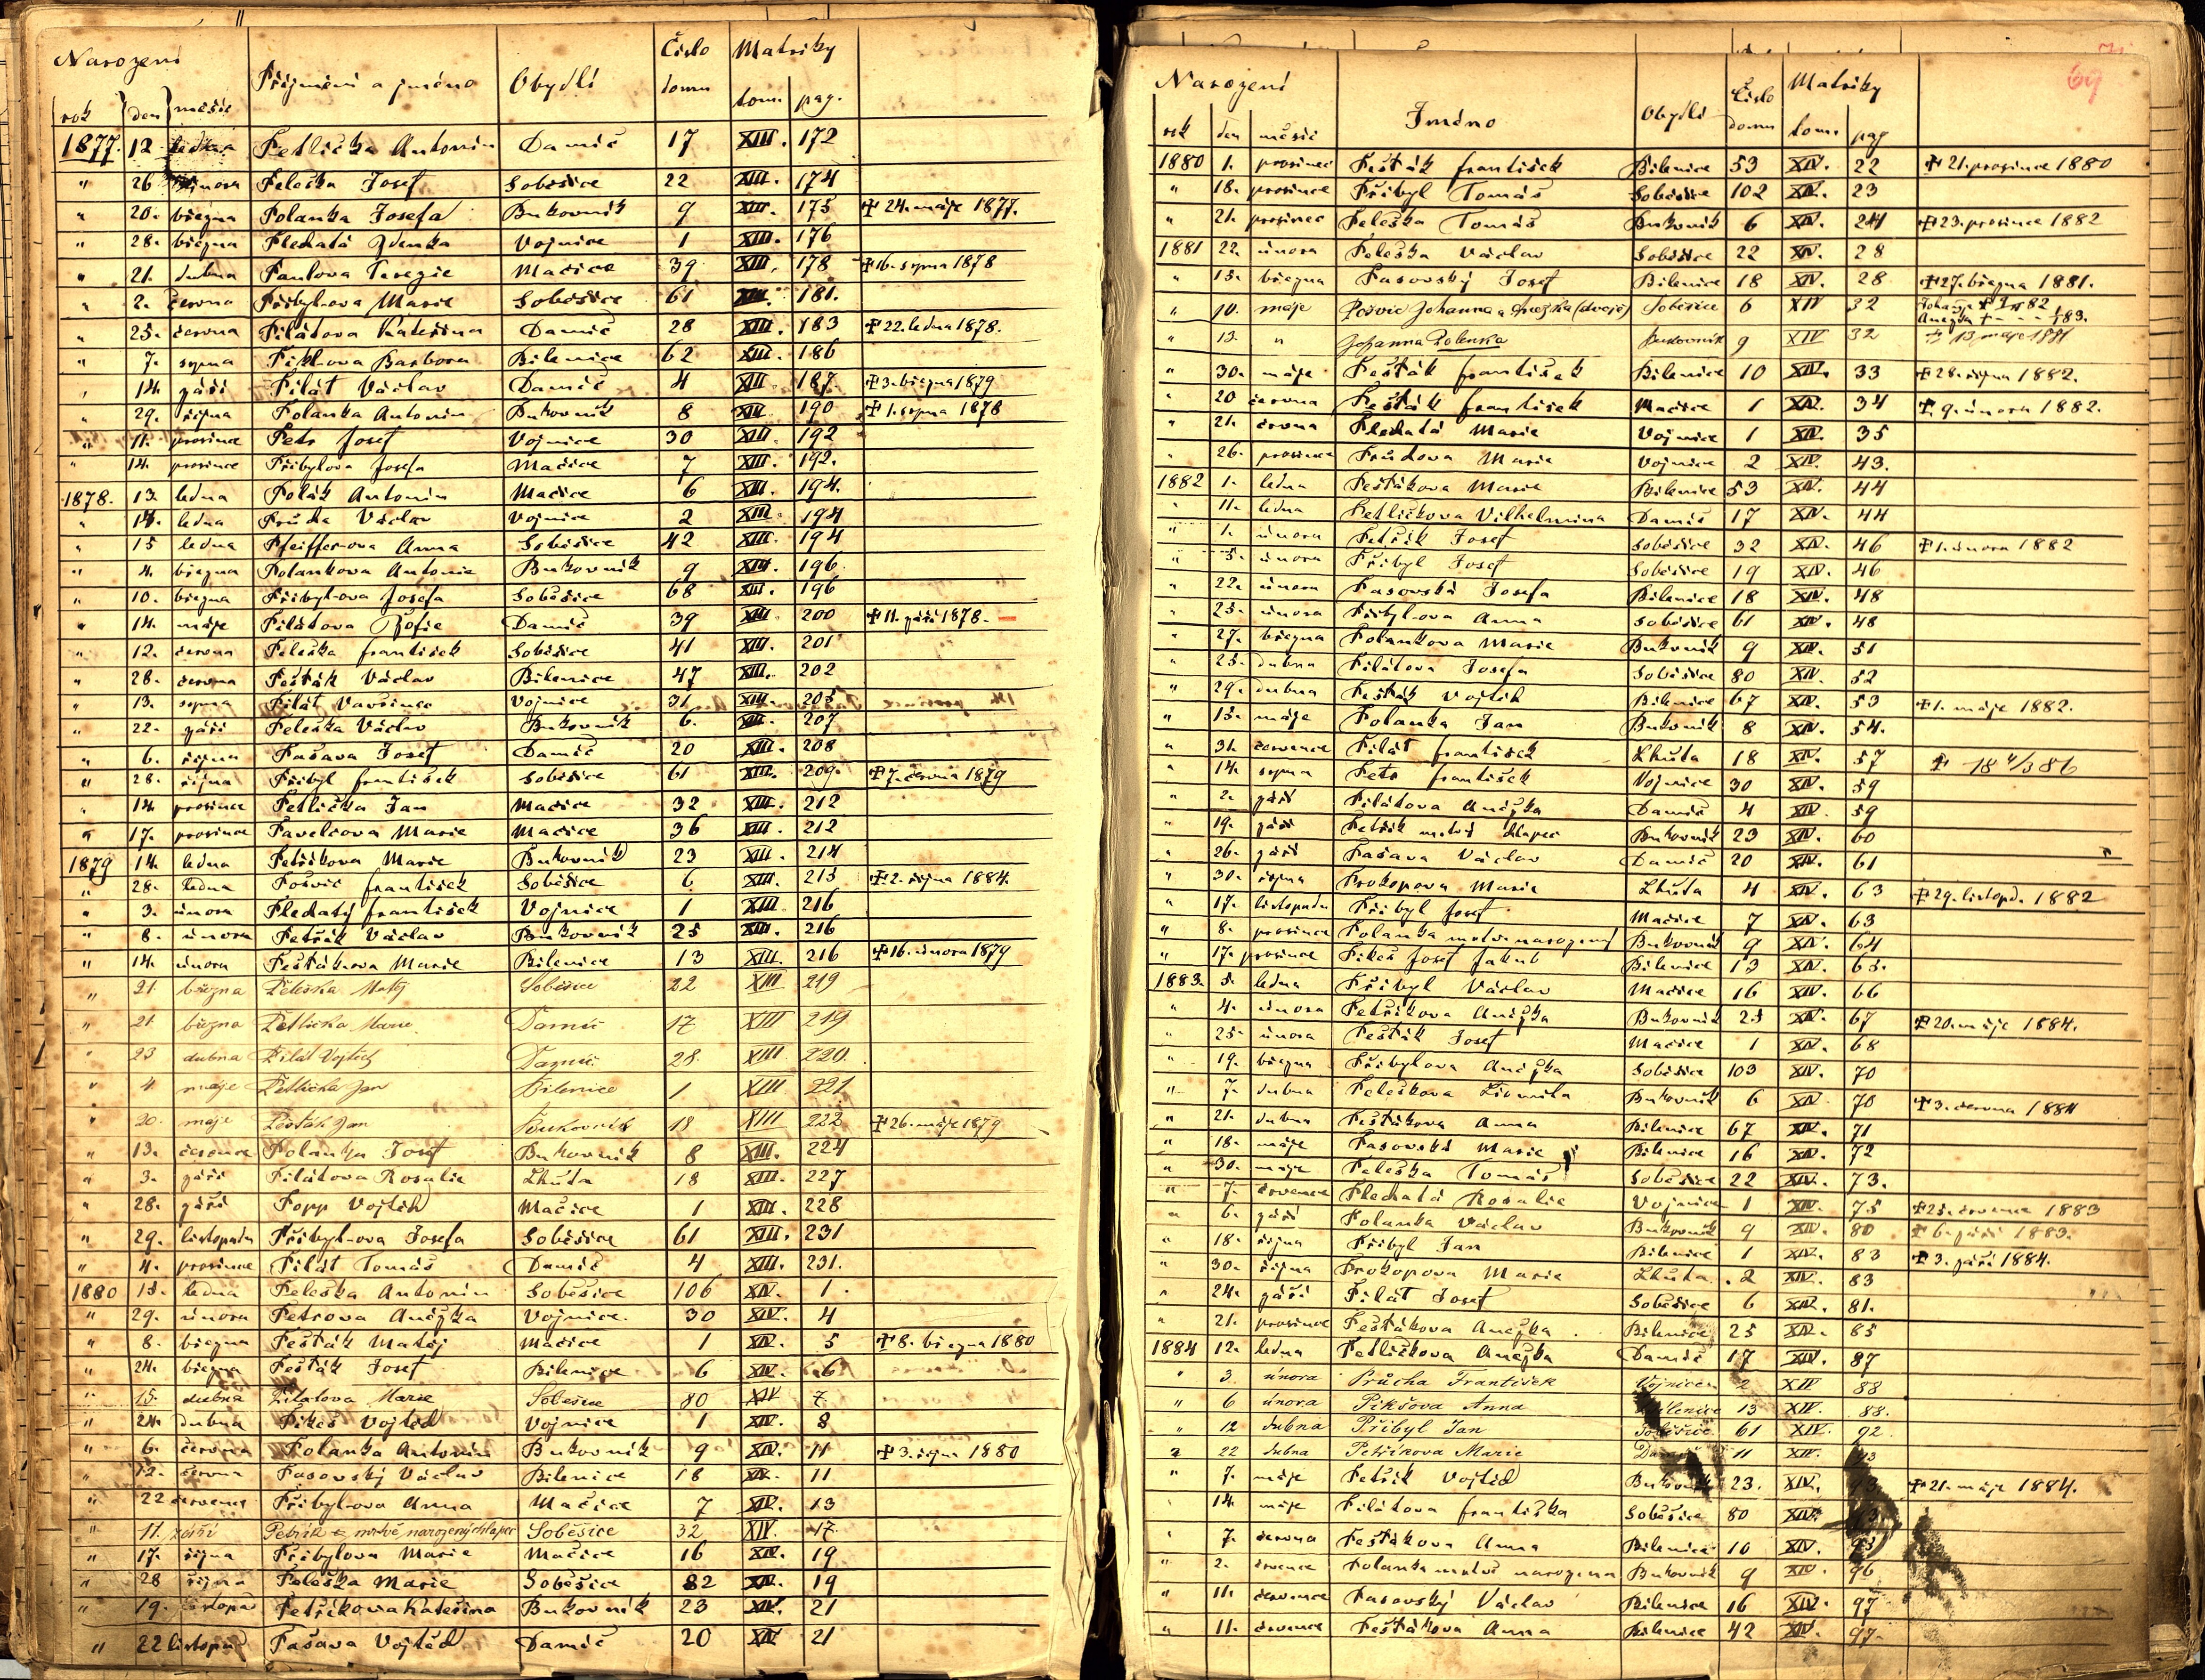 Narození Příjmení a jméno Obydlí Číslo domu Matriky
rok den měsíc tom. pag.
1877. 12 ledna Petlička Antonín Damíč 17 XIII. 172
" 26 února Peleška Josef Soběšice 22 XIII. 174
" 20. března Polanka Josefa Bukovník 9 XIII. 175 ✝ 24. máje 1877.
" 28. března Pledatá Zdenka Vojnice 1 XIII. 176
" 21. dubna Paulova Terezie Mačice 39 XIII. 178 ✝ 16. srpna 1878
" 2. června Přibyl-ova Marie Soběšice 61 XIII. 181.
" 25. června Pilátova Kateřina Damíč 28 XIII. 183 ✝ 22. ledna 1878.
" 7. srpna Barbora Bílenice 62 XIII. 186
" 14. září Pilát Václav Damíč 4 XIII. 187. ✝ 3. března 1879
" 29. října Polanka Antonín Bukovník 8 XIII. 190 ✝ 1. srpna 1878
" 11. prosince Petr Josef Vojnice 30 XIII. 192
" 14. prosince Přibylova Josefa Mačice 7 XIII. 192.
1878. 13. ledna Polák Antonín Mačice 6 XIII. 194.
" 14. ledna Průcha Václav Vojnice 2 XIII. 194
" 15 ledna Pfeiffer-ova Anna Soběšice 42 XIII. 194
" 4. března Polankova Antonie Bukovník 9 XIII. 196.
" 10. března Přibyl-ova Josefa Soběšice 68 XIII. 196
" 14. máje Pilátova Žofie Damíč 39 XIII. 200 ✝ 11. září 1878.
" 12. června Peleška František Soběšice 41 XIII. 201
" 28. června Pešták Václav Bílenice 47 XIII. 202
" 13. srpna Pilát Vavřinec Vojnice 31 XIII. 205
" 22. září Peleška Václav Bukovník 6. XIII. 207
" 6. října Pašava Josef Damíč 20 XIII. 208
" 28. října Přibyl František Soběšice 61 XIII. 209. ✝ 7. června 1879
" 14. prosince Petlička Jan Mačice 32 XIII. 212
" 17. prosince Pavelcova Marie Mačice 36 XIII. 212
1879 14. ledna Petříkova Marie Bukovník 23 XIII. 214
" 28. ledna Pošvic František Soběšice 6 XIII. 215 ✝ 2. října 1884.
" 3. února Pledatý František Vojnice 1 XIII. 216
" 8. února Petřík Václav Bukovník 25 XIII. 216
" 14. února Pešták-ova Marie Bílenice 13 XIII. 216 ✝ 16. února 1879
" 21. března Peleška Matěj Soběšice 22 XIII 219
" 21. března Petlička Marie Damíč 17 XIII 219
" 23 dubna Pilát Vojtěch Damíč 28. XIII 220.
" 4 máje Petlička Jan Bílenice 1 XIII 221
" 20. máje Pešták Jan Bukovník 18 XIII 222 ✝ 26. máje 1879
" 13. července Polanka Josef Bukovník 8 XIII. 224
" 3. září Pilátova Rosalie Lhůta 18 XIII. 227
" 28. září Popp Vojtěch Mačice 1 XIII. 228
" 29. listopadu Přibyl-ova Josefa Soběšice 61 XIII. 231
" 4. prosince Pilát Tomáš Damíč 4 XIII. 231.
1880 15. ledna Peleška Antonín Soběšice 106 XIV. 1.
" 29. února Petrova Anežka Vojnice 30 XIV. 4
" 8. března Pešták Matěj Mačice 1 XIV. 5 ✝ 8. března 1880
" 24. března Pešták Josef Bílenice 6 XIV. 6
" 15. dubna Pilatova Marie Soběšice 80 XIV 7
" 24. dubna Pikeš Vojtěch Vojnice 1 XIV. 8
" 6. června Polanka Antonín Bukovník 9 XIV. 11 ✝ 3. října 1880
" 12. června Pasovský Václav Bílenice 18 XIV. 11
" 22 července Přibyl-ova Anna Mačice 7 XIV. 13
" 11. září Petřík mrtvě narozený chlapec Soběšice 32 XIV. 17.
" 17. října Přibylova Marie Mačice 16 XIV. 19
" 28 října Peleška Marie Soběšice 82 XIV. 19
" 19. listopad Petříkova Kateřina Bukovník 23 XIV. 21
" 22 listopad Pašava Vojtěch Damíč 20 XIV 21
69
Narození Jméno Obydlí Číslo domu Matriky
rok den měsíc tom. pag
1880 1. prosince Pešták František Bílenice 53 XIV. 22 ✝ 21. prosince 1880
" 18. prosince Přibyl Tomáš Soběšice 102 XIV. 23
" 21. prosince Peleška Tomáš Bukovník 6 XIV. 24 ✝ 23. prosince 1882
1881 22. února Peleška Václav Soběšice 22 XIV. 28
" 15. března Pasovský Josef Bílenice 18 XIV. 28 ✝ 27. března 1881.
" 10. máje Pošvic Johanna a Anežka (dvojč) Soběšice 6 XIV 32 Johanna ✝ 82 Anežka ✝ 83.
" 13. " Johanna Polenka Bukovník 9 XIV 32 ✝ 13 máje 1881
" 30. máje Pešták František Bílenice 10 XIV. 33 ✝ 28. října 1882.
" 20 června Pešták František Mačice 1 XIV. 34 ✝ 9. února 1882.
" 21. června Pledatá Marie Vojnice 1 XIV. 35
" 26. prosince Průchova Marie Vojnice 2 XIV. 43.
1882 1. ledna Peštákova Marie Bílenice 53 XIV. 44
" 11. ledna Petličkova Vilhelmina Damíč 17 XIV. 44
" 1. února Petřík Josef Soběšice 32 XIV. 46 ✝ 1. února 1882
" 5. února Přibyl Josef Soběšice 19 XIV. 46
" 22. února Pasovská Josefa Bílenice 18 XIV. 48
" 25. února Přibyl-ova Anna Soběšice 61 XIV. 48
" 27. března Polankova Marie Bukovník 9 XIV. 51
" 25. dubna Pilátova Josefa Soběšice 80 XIV. 52
" 29. dubna Pešták Vojtěch Bílenice 67 XIV. 53 ✝ 1. máje 1882.
" 15. máje Polanka Jan Bukovník 8 XIV. 54.
" 31. července Pilát František Lhůta 18 XIV. 57 ✝ 18 4/3 86
" 14. srpna Petr František Vojnice 30 XIV. 59
" 2. září Pilátova Anežka Damíč 4 XIV. 59
" 19. září Petřík mrtvý chlapec Bukovník 23 XIV. 60
" 26. září Pašava Václav Damíč 20 XIV. 61
" 30. října Prokopova Marie Lhůta 4 XIV. 63 ✝ 29. listopd. 1882
" 17. listopadu Přibyl Josef Mačice 7 XIV. 63
" 8. prosince Polanka mrtvě narozený Bukovník 9 XIV. 64
" 17. prosince Pikeš Josef Jakub Bílenice 13 XIV. 65.
1883. 5. ledna Přibyl Václav Mačice 16 XIV. 66
" 4. února Petříkova Anežka Bukovník 23 XIV. 67 ✝ 20. máje 1884.
" 25. února Pešták Josef Mačice 1 XIV. 68
" 19. března Přibylova Anežka Soběšice 103 XIV. 70
" 7. dubna Peleškova Lidmila Bukovník 6 XIV. 70 ✝ 3. června 1884
" 21. dubna Peštákova Anna Bílenice 67 XIV. 71
" 18. máje Pasovská Marie Bílenice 16 XIV. 72
" 30. máje Peleška Tomáš Soběšice 22 XIV. 73.
" 7. července Pledatá Rosalie Vojnice 1 XIV. 75 ✝ 25. července 1883
" 6. září Polanka Václav Bukovník 9 XIV. 80 ✝ 6. září 1883.
" 18. října Přibyl Jan Bílenice 1 XIV. 83 ✝ 3. září 1884.
" 30. října Prokopova Marie Lhůta. 2 XIV. 83
" 24. září Pilát Josef Soběšice 6 XIV. 81.
" 21. prosince Peštákova Anežka Bílenice 25 XIV. 85
1884 12. ledna Petličkova Anežka Damíč 17 XIV. 87
" 3 února Průcha František Vojnice 2 XIV 88
" 6 února Pikšova Anna Bílenice 13 XIV. 88.
" 12 dubna Přibyl Jan Soběšice 61 XIV. 92
" 22 dubna Petříkova Marie 11 XIV. 93
" 7. máje Petřík Vojtěch Bukovník 23. XIV. 93 ✝ 21. máje 1884.
" 14 máje Pilátova Františka Soběšice 80 XIV.
" 7. června Peštákova Anna Bílenice 10 XIV. 95
" 2. července Polanka mrtvě narozena Bukovník 9 XIV. 96
" 11. července Pasovský Václav Bílenice 16 XIV. 97
" 11. července Peštákova Anna Bílenice 42 XIV. 97.